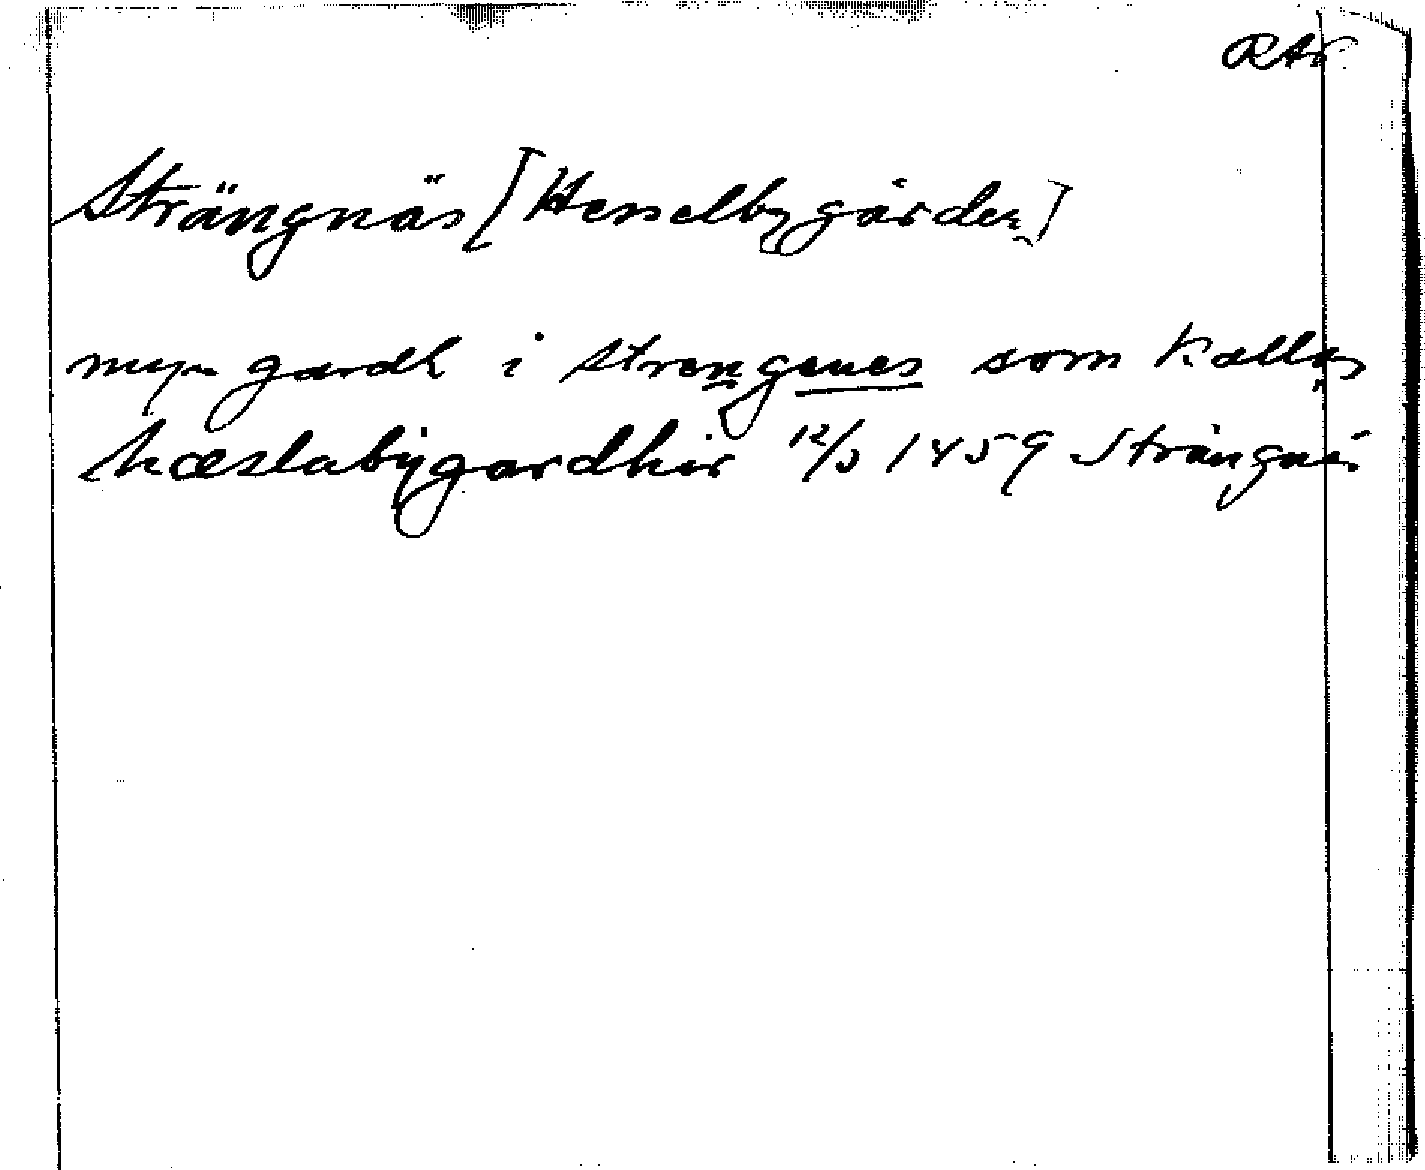 RAp
Strängnäs [Hesselbygården]
myn gardh i strengenes som kallas
hæslabÿgardhir 12/3 1459 Strängnäs